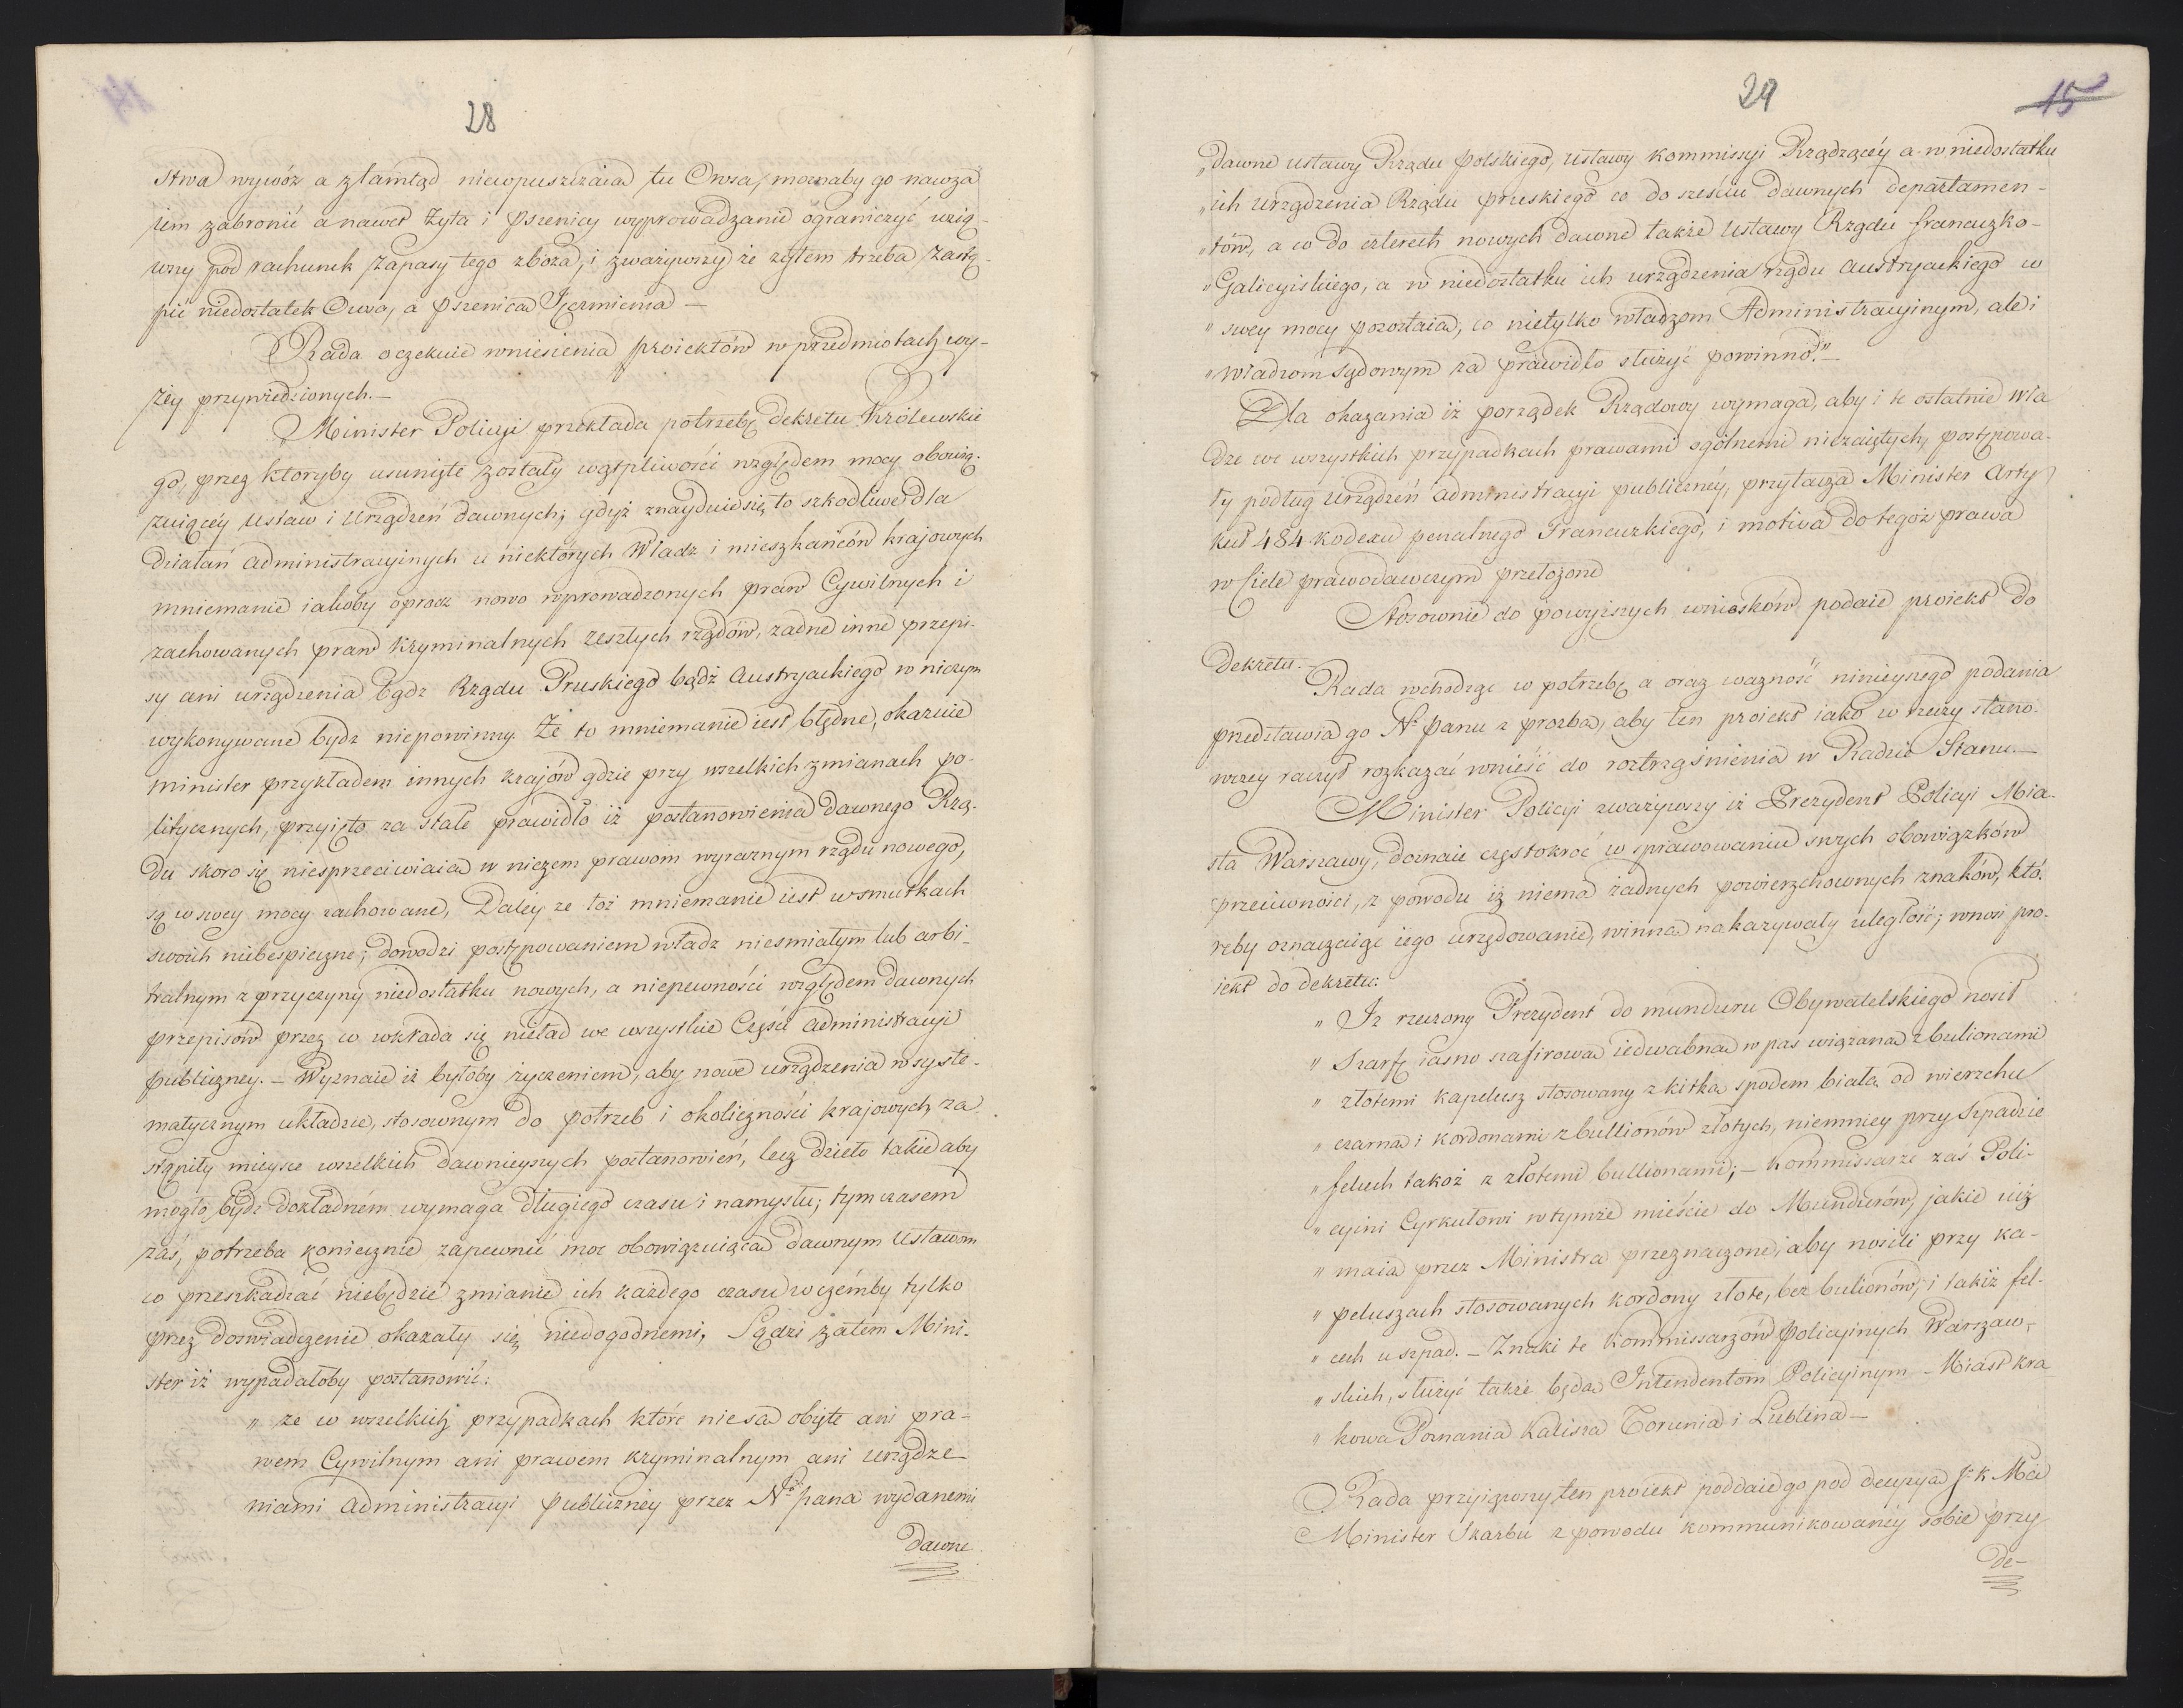 28
stwa wywóz a ztamtąd niewpuszczaią tu Owsa, możnaby go nawza
iem zabronić a nawet Żyta i Pszenicy wyprowadzanie ograniczyć wzią-
wszy pod rachunek zapasy tego zboża, i zważywszy że żytem trzeba zastą-
pić niedostatek Owsa, a pszenicą Ięczmienia —
Rada oczekuie wniesienia proiektów w przedmiotach wy-
żey przywiedzionych. —
Minister Policyi przekłada potrzebę Dekretu Królewskie
go, przez któryby usunięte zostały wątpliwości względem mocy obowią-
zuiącéy ustaw i urządzeń dawnych; gdyż znayduie się to szkodliwe dla
działań administracyinych u niektórych Władz i mieszkańców krajowych
mniemanie iakoby oprocz nowo wprowadzonych praw Cywilnych i
zachowanych praw kryminalnych zeszłych rządów, żadne inne przepi-
sy ani urządzenia bądz Rządu Pruskiego bądź Austryackiego w niczym
wykonywane bydz niepowinny. Że to mniemanie iest błędne, okazuie
minister przykładem innych krajów gdzie przy wszelkich zmianach po-
litycznych, przyięto za stałe prawidło iż postanowienia dawnego Rzą-
du skoro się niesprzeciwiaią w niczem prawom wyraznym rządu nowego,
są w swey mocy zachowane, Daley że toż mniemanie iest w smutkach
swoich niebespieczne; dowodzi postępowaniem władz niesmiałym lub arbi-
tralnym z przyczyny niedostatku nowych, a niepewności względem dawnych
przepisów przez co wkrada się nieład we wszystkie Części administracyi
publiczney. — Wyznaie iż byłoby życzeniem, aby nowe urządzenia w syste-
matycznym układzie, stosownym do potrzeb i okoliczności krajowych za
stąpiły mieysce wszelkich dawnieyszych postanowień, lecz dzieło takie aby
mogło bydz dokładném wymaga długiego czasu i namysłu; tymczasem
zaś, potrzeba koniecznie zapewnić moc obowiązuiącą dawnym Ustawom
co przeszkadzać niebędzie zmianie ich każdego czasu w czémby tylko
przez doświadczenie okazały się niedogodnemi, Sądzi zatem Mini-
ster iż wypadałoby postanowić:
„ że w wszelkich przypadkach które niesą obięte ani pra-
wem Cywilnym ani prawem kryminalnym ani urządze-
niami administracyi publiczney przez Nº Pana wydanemi
dawne
29
15
„dawne ustawy Rządu polskiego, ustawy kommissyi Rządzącéy a w niedostatku
„ich urządzenia Rządu pruskiego co do sześciu dawnych departamen-
„tów, a co do czterech nowych dawne także ustawy Rządu francuzko-
„Galicyiskiego, a w niedostatku ich urządzenia rządu austryackiego w
„ swey mocy pozostaią, co nietylko władzom Administracyinym, ale i
„ władzom sądowym za prawidło służyć powinno.” —
Dla okazania iż porządek Rządowy wymaga, aby i te ostatnie wła
dze we wszystkich przypadkach prawami ogólnemi niezaiętych, postępowa-
ły podług urządzeń administracyi publicznéy, przytacza Minister Arty
kuł 484 kodexu penalnego Francuzkiego, i motiva do tegoż prawa
w Ciele prawodawczym przełożone
Stosownie do powyższych wniosków podaie proiekt do
dekretu. —
Rada wchodząc w potrzebę a oraz ważność ninieyszego podania
przedstawia go Nº Panu z prozbą, aby ten proiekt iako w rzeczy stano-
wczey raczył rozkazać wnieść do roztrząśnienia w Radzie Stanu. —
Minister Policyi zważywszy iż Prezydent Policyi Mia-
sta Warszawy, doznaie częstokroć w sprawowaniu swych obowiązków
przeciwności, z powodu iż niema żadnych powierzchownych znaków, któ-
reby oznaczaiąc iego urzędowanie, winną nakazywały uległość; wnosi pro-
iekt do dekretu:
„ Iż rzeczony Prezydent do munduru Obywatelskiego nosił
„ Szarfę iasno szafirową iedwabną w pas wiązaną z bulionami
„ złotemi kapelusz stosowany z kitką spodem białą od wierzchu
„ czarną i kordonami z bullionów złotych, niemniey przy Szpadzie
„ felcech takoż z złotemi bullionami; — Kommissarze zaś Poli-
„ cyini Cyrkułowi w tymże mieście do Mundurów, jakie iuż
„ maią przez Ministra przeznaczone, aby nosili przy ka-
„ peluszach stosowanych kordony złote, bez bulionów, i takiż fel-
„ cech u szpad. — Znaki te Kommissarzów policyinych Warszaw-
„ skich, służyć także będą Intendentom Policyinym — Miast Kra
„ kowa Poznania Kalisza Torunia i Lublina —
Rada przyiąwszy ten proiekt poddaie go pod decyzyą J. K. Mci
Minister Skarbu z powodu kommunikowanéy sobie przy
de-